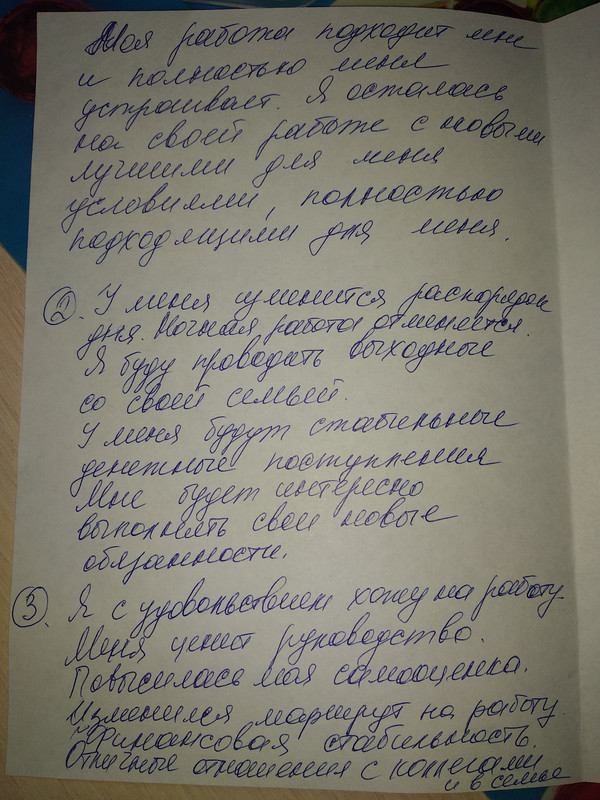 Моя работа подходит мне
и полностью меня
устраивает. Я осталась
на своей работе с новыми
лучшими для меня
условиями, полностью
подходящими для меня.
2. У меня изменится распорядок
дня. Ночная работа отменяется.
Я буду проводить выходные
со своей семьёй.
У меня будут стабильные
денежные поступления
Мне будет интересно
выполнять свои новые
обязанности.
3. Я с удовольствием хожу на работу.
Меня ценит руководство.
Повысилась моя самооценка.
Изменился маршрут на работу.
Финансовая стабильность.
Отличные отношения с коллегами
и в семье